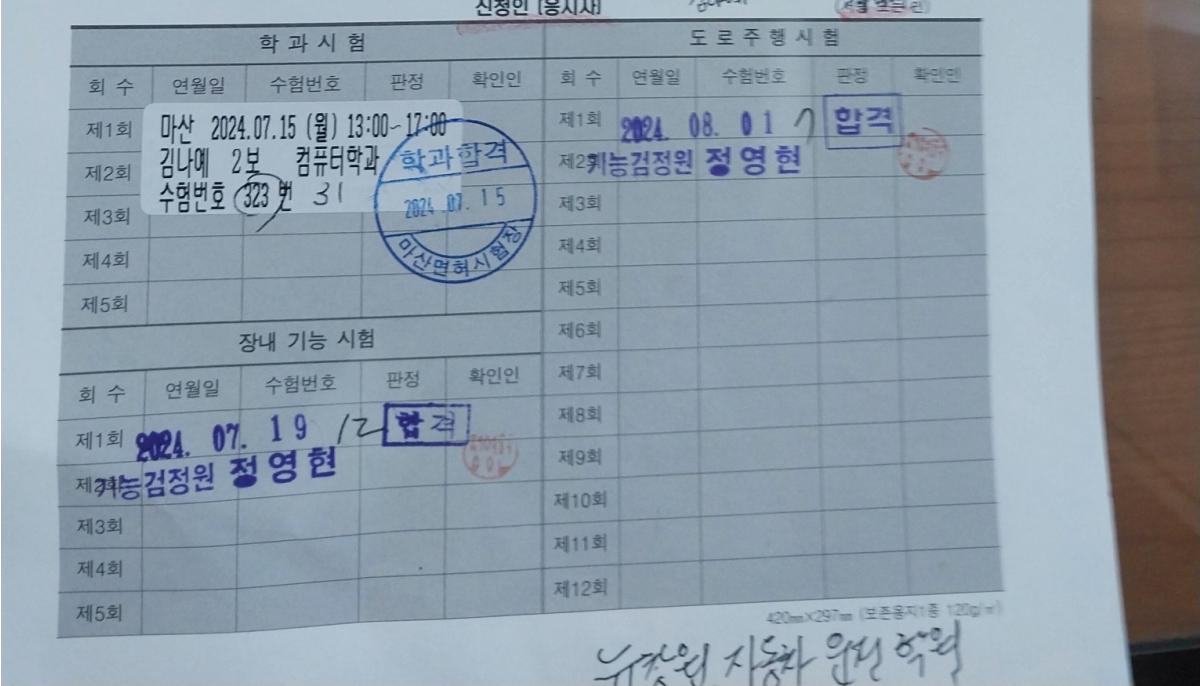 신청인 [응시자]
학 과 시 험
회 수 연월일 수험번호 판정 확인인
제1회
제2회
제3회
제4회
제5회
마산 2024.07.15 (월) 13:00~17:00
김나예 2보 컴퓨터학과
수험번호 323번 31
학과합격
2024.07.15
마산면허시험장
장내 기능 시험
회 수 연월일 수험번호 판정 확인인
제1회 2024. 07. 19 12 합격
제2회 기능검정원 정영현
제3회
제4회
제5회
도 로 주 행 시 험
회 수 연월일 수험번호 판정 확인인
제1회 2024. 08. 01 7 합격
제2회 기능검정원 정영현
제3회
제4회
제5회
제6회
제7회
제8회
제9회
제10회
제11회
제12회
420㎜×297㎜ (보존용지1종 120g/㎡)
뉴창원 자동차 운전 학원